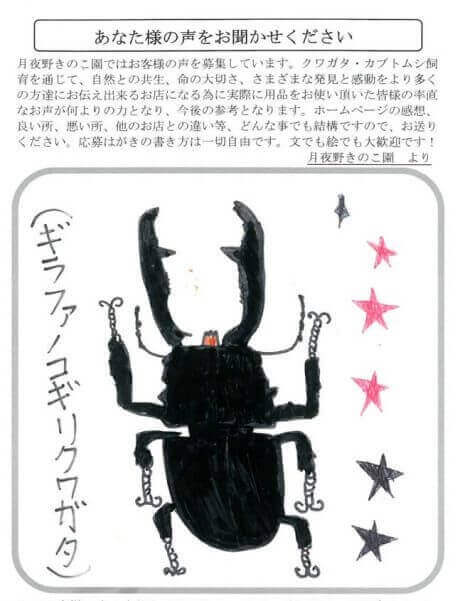 あなた様の声をお聞かせください
月夜野きのこ園ではお客様の声を募集しています。クワガタ・カブトムシ飼
育を通じて、自然との共生、命の大切さ、さまざまな発見と感動をより多く
の方達にお伝え出来るお店になる為に実際に用品をお使い頂いた皆様の率直
なお声が何よりの力となり、今後の参考となります。ホームページの感想、
良い所、悪い所、他のお店との違い等、どんな事でも結構ですので、お送り
ください。応募はがきの書き方は一切自由です。文でも絵でも大歓迎です！
月夜野きのこ園　より
(ギラファノコギリクワガタ)